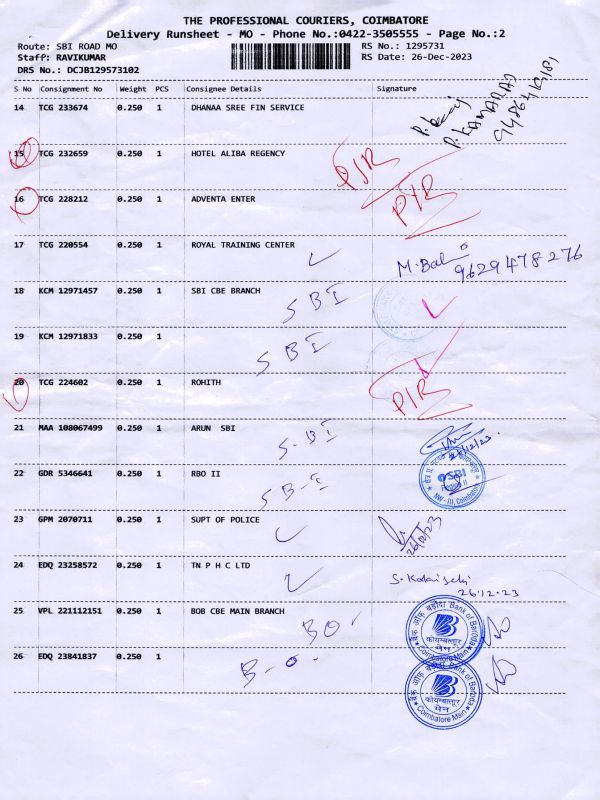 THE PROFESSIONAL COURIERS, COIMBATORE
Delivery Runsheet - MO - Phone No.:0422-3505555 - Page No.:2
Route: SBI ROAD MO
RS No.: 1295731
Staff: RAVIKUMAR
RS Date: 26-Dec-2023
DRS No.: DCJB129573102
S No Consignment No Weight PCS Consignee Details Signature
14 TCG 233674 0.250 1 DHANAA SREE FIN SERVICE
P. KAMARAJ
15 TCG 232659 0.250 1 HOTEL ALIBA REGENCY P/R
16 TCG 228212 0.250 1 ADVENTA ENTER P/R
17 TCG 220554 0.250 1 ROYAL TRAINING CENTER M. 9629478276
18 KCM 12971457 0.250 1 SBI CBE BRANCH SBI
19 KCM 12971833 0.250 1 SBI
20 TCG 224602 0.250 1 ROHITH P/R
21 MAA 108067499 0.250 1 ARUN SBI S-BI
26/12/23
22 GDR 5346641 0.250 1 RBO II SB-I
SBI
Region II
NW - III, Coimbatore
23 GPM 2070711 0.250 1 SUPT OF POLICE 26/12/23
24 EDQ 23258572 0.250 1 TN P H C LTD
26.12.23
25 VPL 221112151 0.250 1 BOB CBE MAIN BRANCH BO
बैंक ऑफ़ बड़ौदा Bank of Baroda
कोयम्बातूर
मेन
Coimbatore Main
26 EDQ 23841837 0.250 1 B-O.
बैंक ऑफ़ बड़ौदा Bank of Baroda
कोयम्बातूर
मेन
Coimbatore Main